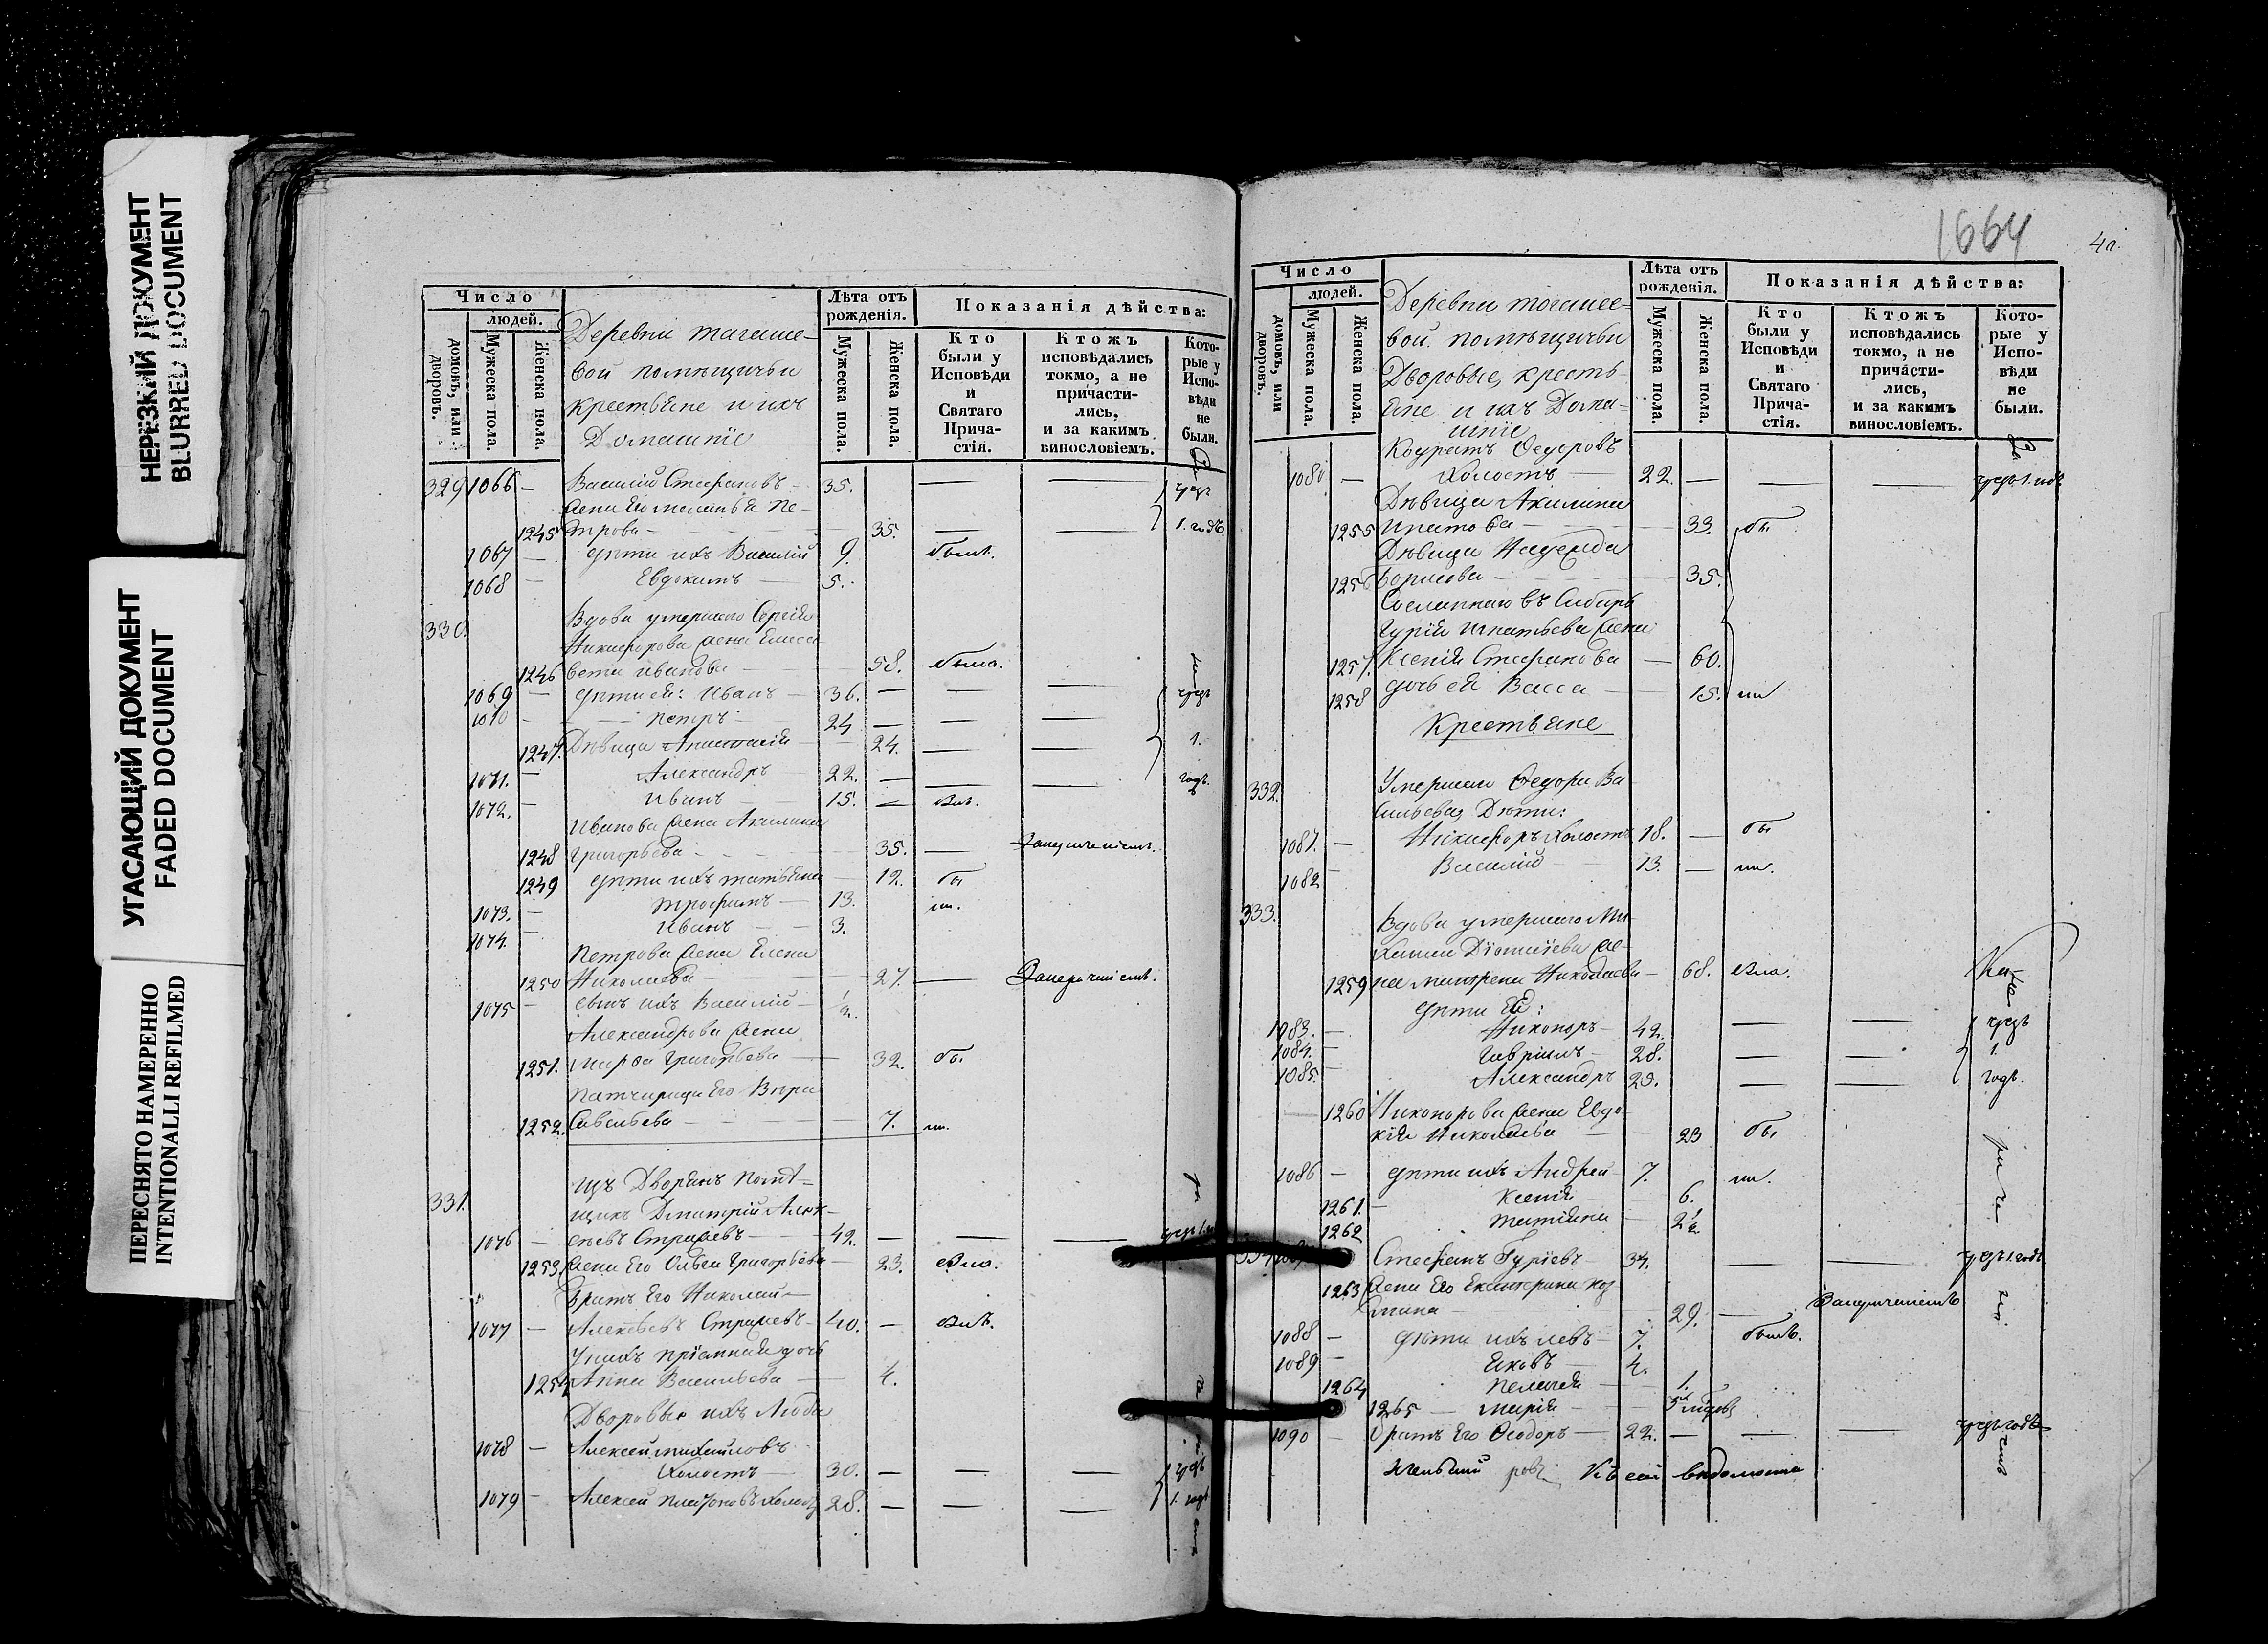 НЕРЕЗКИЙ ДОКУМЕНТ
BLURRED DOCUMENT
УГАСАЮЩИЙ ДОКУМЕНТ
FADED DOCUMENT
ПЕРЕСНЯТО НАМЕРЕННО
INTENTIONALLI REFILMED
Число
людей.
домовъ, или дворовъ.
Мужеска пола.
Женска пола.
Деревни
вой помѣщичьи
крестьяне и ихъ
Домашніе
Лѣта отъ рожденія.
Мужеска пола.
Женска пола.
Показанія дѣйства:
Кто были у Исповѣди и Святаго Прича-стія.
Ктожъ исповѣдались токмо, а не причасти-лись, и за какимъ винословіемъ.
Кото-рые у Испо-вѣди не были.
329 1066 — Василій Стефановъ — 35.
Жена Его Меланья Пе-
1245 трова — 35. 1. годъ
1067 — дѣти ихъ Василій 9. былъ.
1068 — Евдокимъ — 5.
330. Вдова умершаго Сергѣя
Никифорова жена Елиса
1246 вета Иванова — 58. была.
1069 — дѣти ея: Иванъ — 36. — чрезъ
1070 — Петръ — 24 —
1247. Дѣвица Анастасія — 24. — 1.
1071. — Александръ 22. — годъ.
1072. — Иванъ 15. —
Иванова жена Акилина
1248 Григорьева — 35. —
1249 дѣти ихъ Татьяна 12. бы
1073. — Трофимъ — 13. ли.
1074. — Иванъ — 3.
Петрова жена Елена
1250 Николаева — 27. —
1075 — сынъ ихъ Василій —
Александрова жена
1251. Марѳа Григорьева — 32. бы
Его Вѣра
1252. Савельева — 7. ли.
331. изъ Дворянъ Помѣ-
щикъ Дмитрій Алек-
1076 — сѣевъ — 42. —
1253. Жена Его Ольга Григорьева — 23. была.
Братъ Его Николай —
1077 — Алексѣевъ — 40. — былъ.
У нихъ пріемная дочь
1254 Анна Васильева — 4.
Дворовые ихъ Люди
1078 — Алексѣй Михайловъ
Холостъ — 30. — чрезъ
1079 — Алексѣй Платоновъ Холостъ 28. — 1. годъ
1664
Число
людей.
домовъ, или дворовъ.
Мужеска пола.
Женска пола.
Деревни
вой помѣщичьи
Дворовые, кресть-
яне и ихъ Дома-
шніе
Лѣта отъ рожденія.
Мужеска пола.
Женска пола.
Показанія дѣйства:
Кто были у Исповѣди и Святаго Прича-стія.
Ктожъ исповѣдались токмо, а не причасти-лись, и за какимъ винословіемъ.
Кото-рые у Испо-вѣди не были.
Кодратъ Ѳедоровъ
1080 — Холостъ — 22. — чрезъ 1. годъ
Дѣвица Акилина
1255 Ипатова — 33. бы
Дѣвица Надежда
1256 Борисова — 35.
Сосланнаго въ Сибирь
Гурія Игнатьева жена
1257. Ксенія Стефанова — 60.
1258 дочь ея Васса — 15. ли
Крестьяне
332. Умершаго Ѳедора Ва
сильева, Дѣти:
1081. — Никифоръ Холостъ 18. — бы
1082 — Василій — 13. — ли.
333. Вдова умершаго Ми
хаила Діонисіева же-
1259 на Матрена Николаева — 68. была.
дѣти Ея:
1083. — Никаноръ — 42. чрезъ
1084. — Гавріилъ — 28. 1.
1085. — Александръ 25. годъ.
1260 Никанорова жена Евдо
кія Николаева — 23 бы
1086 — дѣти ихъ Андрей — 7. ли.
1261. — Ксенія — 6.
1262 Татіана — 2½
Стефанъ Гуріевъ — 34. чрезъ 1. годъ
1263 Жена Его Екатерина Коз
мина — 29. —
1088 — дѣти ихъ Левъ — 7. былъ.
1089 — Яковъ — 4.
1264 Пелагія — 1.
1265 — Марія — 5
1090 — братъ Его Ѳеодоръ — 22. — чрезъ годъ